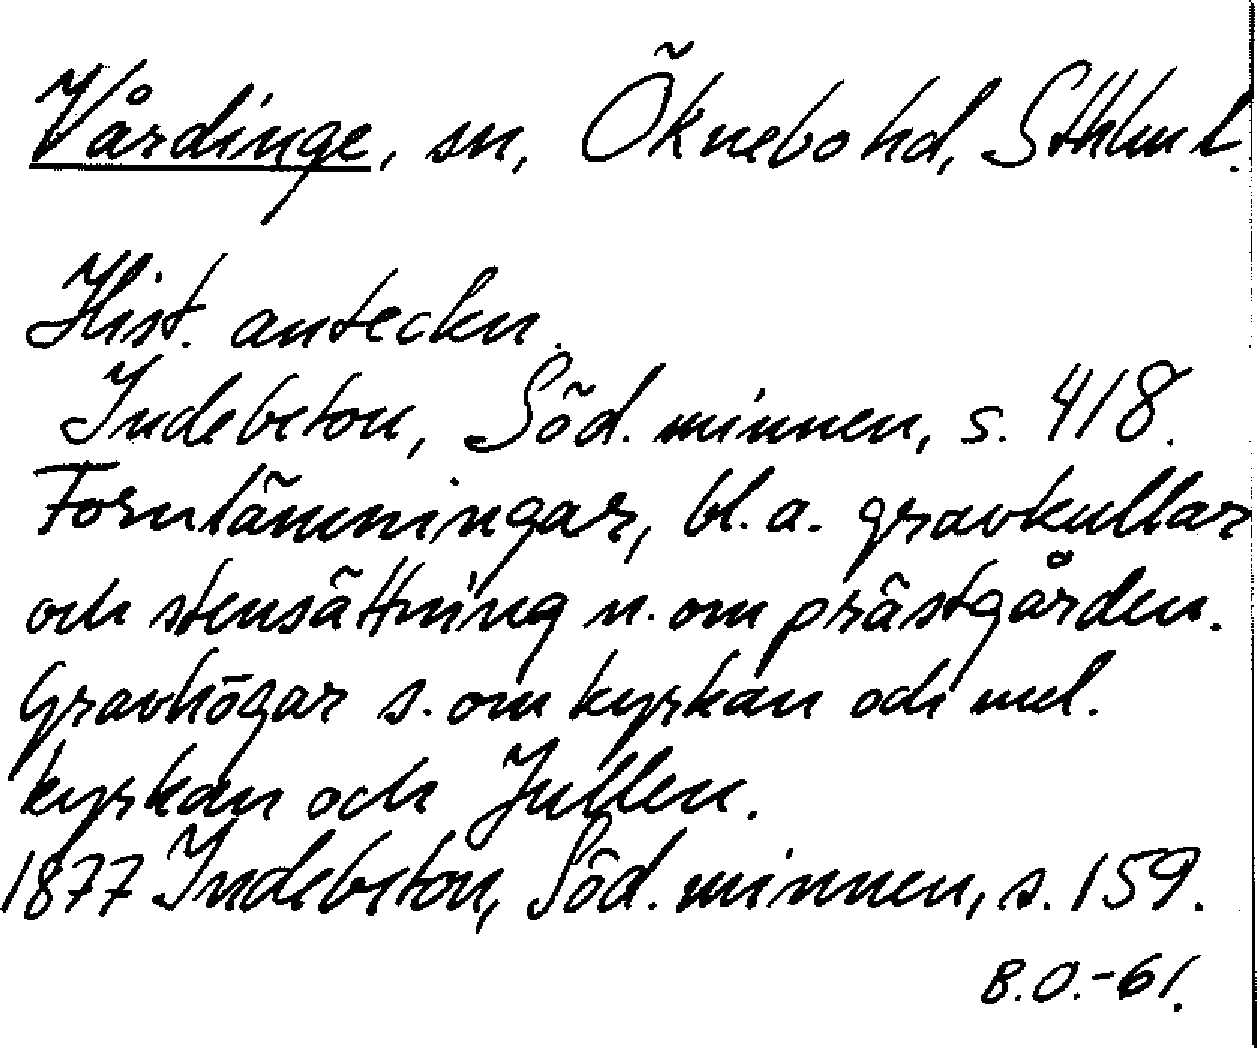 Vårdinge, sn, Öknebo hd, Sthlm l.
Hist. anteckn.
Indebetou, Söd. minnen, s. 418.
Fornlämningar, bl. a. gravkullar
och stensättning n. om prästgården.
Gravhögar s. om kyrkan och mel.
kyrkan och Jullen.
1877 Indebetou, Söd. minnen, s. 159.
B.O.-61.